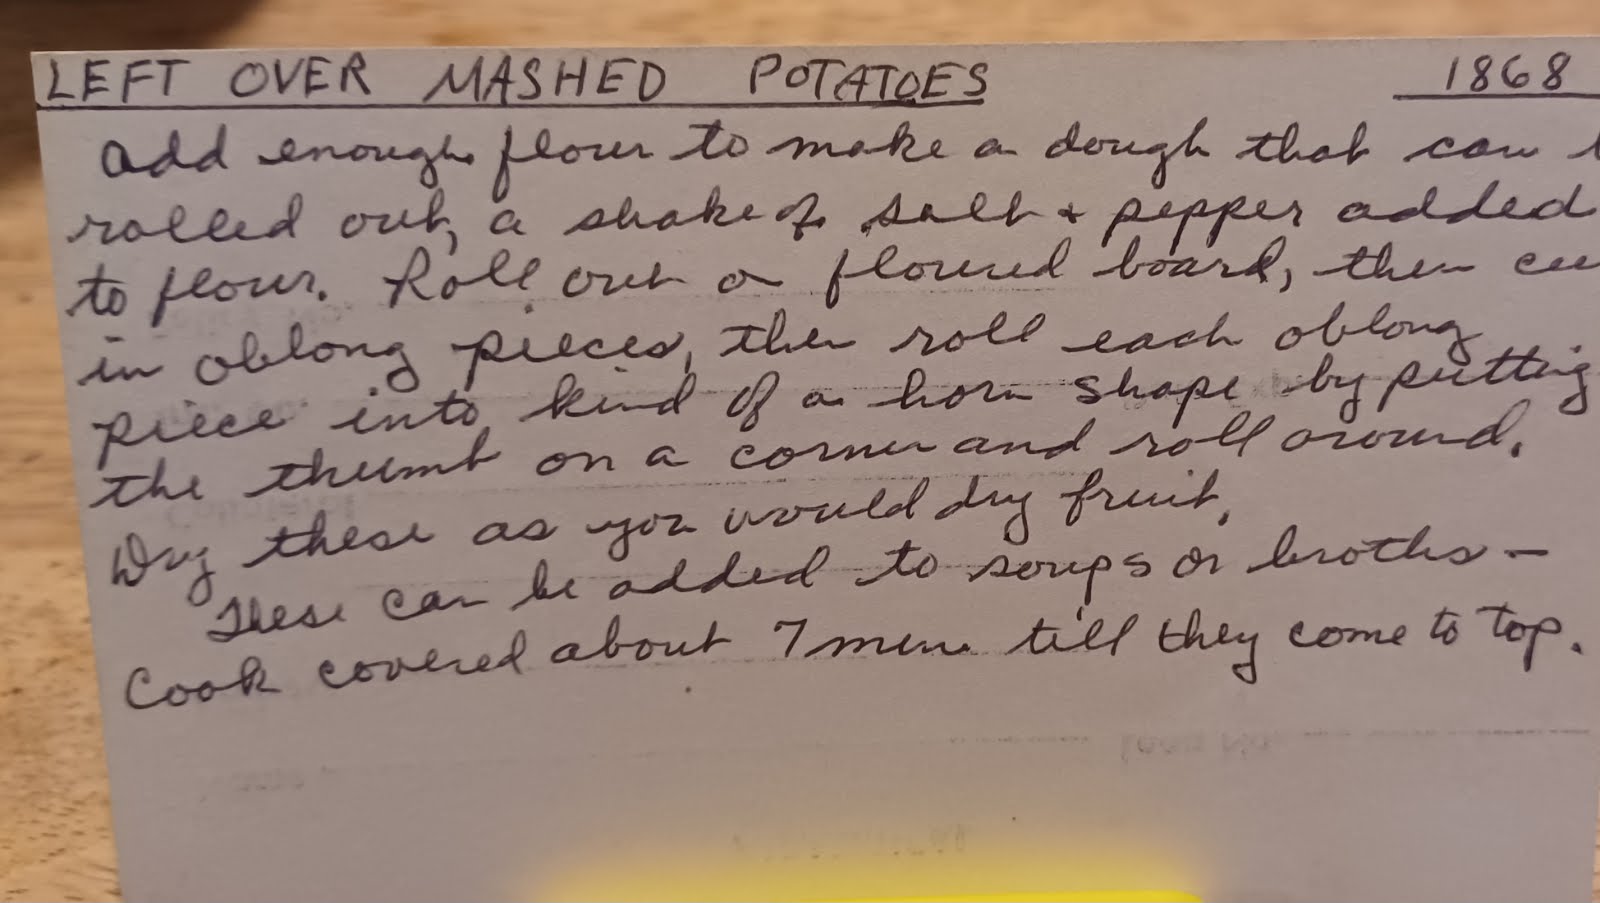 LEFT OVER MASHED POTATOES 1868
add enough flour to make a dough that can
rolled out, a shake of salt + pepper added
to flour. Roll out on floured board, then
in oblong pieces, then roll each oblong
piece into kind of a horn shape by putting
the thumb on a corner and roll around.
Dry these as you would dry fruit.
These can be added to soups or broths -
Cook covered about 7 min. till they come to top.